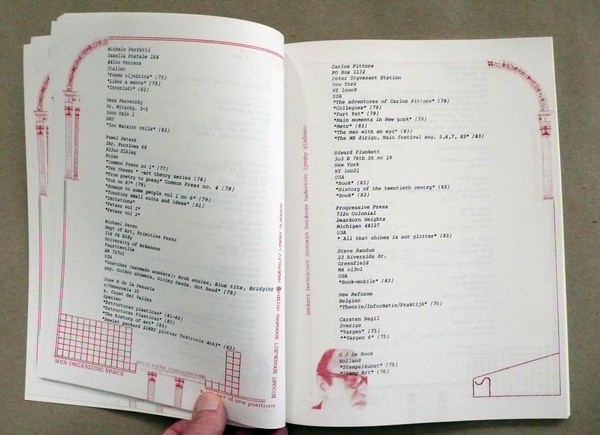 Michele Perfetti
Casella Postale 264
44100 Ferrara
Italien
"Poema oljobrica" (79)
"Liber a mente" (79)
"Interludi" (82)
Geza Perneczky
Gr. Witschg. 3-5
5000 Köln 1
BRD
"100 Marxist cells" (83)
Pawel Petasz
Skr. Pocztowa 68
82300 Elblag
Polen
"Common Press no 1" (77)
"Ten theses - art theory series (78)
"From poetry to poesy" Common Press no. 4 (78)
"Pub no 47" (79)
"Homage to some people vol 2 no 6" (79)
"Touching small coins and ideas" (81)
"Imitations"
"Petasz vol 1"
"Petasz vol 2"
Michael Peven
Dept of Art, Primitive Press
116 FA Bldg
University of Arkansas
Fayetteville
AR 72701
USA
Jose M de la Pezuela
c/Venezuela 35
e. Coget del Valles
Spanien
"Estructuras plasticas" (81-82)
"Estructuras Plasticas" (82)
"The history of art" (83)
MEN ORGANIZING SPACE
of new positions
Carlos Pittore
PO Box 1132
Peter Stygesant Station
New York
NY 10009
USA
"The adventures of Carlos Pittore" (79)
"Colleguea" (79)
"Yurt Yet" (79)
"Main moments in New york" (79)
"Meto" (83)
"The men with an ego" (83)
"The ME dirigo, Main festival aug. 5,6,7, 83" (83)
Edward Plunkett
303 E 76th St no 19
New York
NY 10021
USA
"Book" (81)
"History of the twentieth centry" (83)
"Book" (83)
Progressive Press
7320 Colonial
Dearborn Heights
Michigan 48127
USA
" All that shines is not glitter" (83)
Steve Random
23 Riverside dr.
Greenfield
MA 01301
USA
"Book-mobile" (83)
New Reforme
Belgien
"Theorie/Informatie/Praktijk" (76)
Carsten Regil
Sverige
"Vargen" (75)
"Vargen 6" (75)
G J De Rook
Holland
"Stempelkunst" (75)
"Stamp Art" (76)